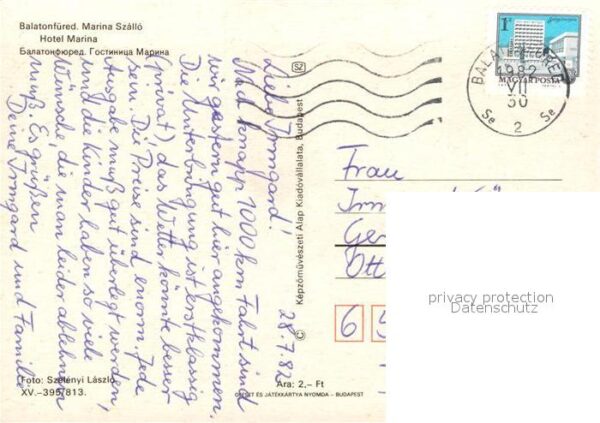 Balatonfüred. Marina Szálló
Hotel Marina
Балатонфюред. Гостиница Марина
1Ft
MAGYAR POSTA
BALATONFÜRED
1982
VII
30
Se 2 Se
SZ
28.7.82
Liebe Irmgard!
Mit knapp 1000 km Fahrt sind
wir gestern gut hier angekommen.
Die Unterbringung ist erstklassig
(privat), das Wetter könnte besser
sein. Die Preise sind enorm. Jede
Ausgabe muß gut überlegt werden,
und die Kinder haben so viele
Wünsche, die man leider ablehnen
muß. Es grüßen
Deine Irmgard und Familie
© Képzőművészeti Alap Kiadóvállalata, Budapest
Frau
Irm
Ott
6 5
privacy protection
Datenschutz
Foto: Szelényi László
XV.–395/813.
Ára: 2,– Ft
OFSZET ÉS JÁTÉKKÁRTYA NYOMDA – BUDAPEST